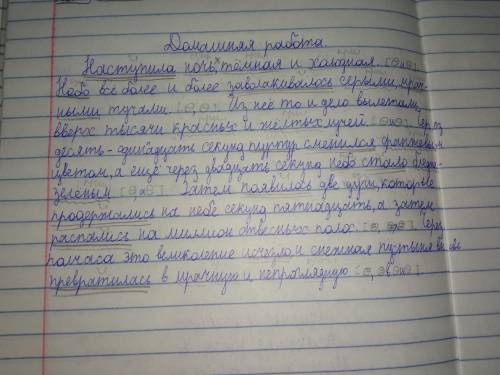 Домашняя работа.
Наступила ночь, тёмная и холодная. [⊖ и ⊖].
Небо всё более и более заволакивалось серыми, мрач-
ными тучами. [⊖, ⊖]. Из неё то и дело вылетали
вверх тысячи красных и жёлтых лучей. Через
десять-двенадцать секунд пурпур сменился оранжевым
цветом, а ещё через двадцать секунд небо стало бледно
зеленым. Затем появилось две дуги, которые
продержались на небе секунд пятнадцать, а затем
распались на миллион отвесных полос. Через
полчаса это великолепие исчезло и снежная пустыня вновь
превратилась в мрачную и непроглядную.